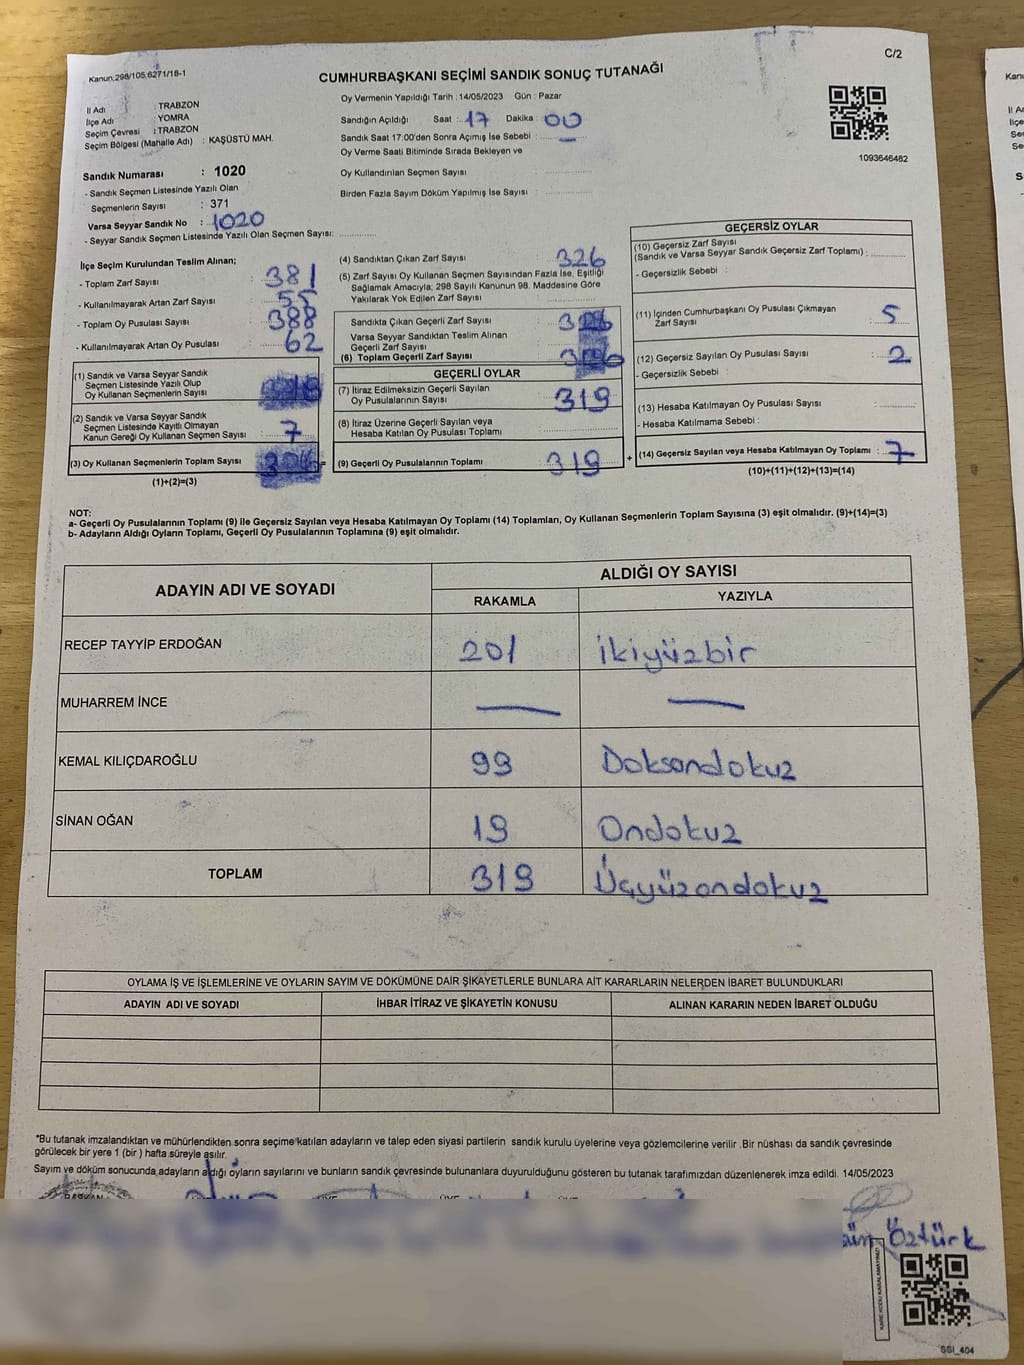 Kanun,298/105;6271/18-1
C/2
CUMHURBAŞKANI SEÇİMİ SANDIK SONUÇ TUTANAĞI
İl Adı : TRABZON
İlçe Adı : YOMRA
Seçim Çevresi : TRABZON
Seçim Bölgesi (Mahalle Adı) : KAŞÜSTÜ MAH.
Oy Vermenin Yapıldığı Tarih : 14/05/2023 Gün : Pazar
Sandığın Açıldığı Saat : 17 Dakika : 00
Sandık Saat 17:00'den Sonra Açımış İse Sebebi : —
Oy Verme Saati Bitiminde Sırada Bekleyen ve
Oy Kullandırılan Seçmen Sayısı :
Birden Fazla Sayım Döküm Yapılmış İse Sayısı :
1093646482
Sandık Numarası : 1020
- Sandık Seçmen Listesinde Yazılı Olan
Seçmenlerin Sayısı : 371
Varsa Seyyar Sandık No : 1020
- Seyyar Sandık Seçmen Listesinde Yazılı Olan Seçmen Sayısı:
İlçe Seçim Kurulundan Teslim Alınan;
- Toplam Zarf Sayısı : 381
- Kullanılmayarak Artan Zarf Sayısı : 55
- Toplam Oy Pusulası Sayısı : 388
- Kullanılmayarak Artan Oy Pusulası : 62
(1) Sandık ve Varsa Seyyar Sandık
Seçmen Listesinde Yazılı Olup
Oy Kullanan Seçmenlerin Sayısı :
(2) Sandık ve Varsa Seyyar Sandık
Seçmen Listesinde Kayıtlı Olmayan
Kanun Gereği Oy Kullanan Seçmen Sayısı : 7
(3) Oy Kullanan Seçmenlerin Toplam Sayısı : 326 =
(1)+(2)=(3)
(4) Sandıktan Çıkan Zarf Sayısı : 326
(5) Zarf Sayısı Oy Kullanan Seçmen Sayısından Fazla İse, Eşitliği
Sağlamak Amacıyla; 298 Sayılı Kanunun 98. Maddesine Göre
Yakılarak Yok Edilen Zarf Sayısı :
Sandıkta Çıkan Geçerli Zarf Sayısı : 326
Varsa Seyyar Sandıktan Teslim Alınan
Geçerli Zarf Sayısı :
(6) Toplam Geçerli Zarf Sayısı : 326
GEÇERLİ OYLAR
(7) İtiraz Edilmeksizin Geçerli Sayılan
Oy Pusulalarının Sayısı : 319
(8) İtiraz Üzerine Geçerli Sayılan veya
Hesaba Katılan Oy Pusulası Toplamı :
(9) Geçerli Oy Pusulalarının Toplamı : 319 +
GEÇERSİZ OYLAR
(10) Geçersiz Zarf Sayısı
(Sandık ve Varsa Seyyar Sandık Geçersiz Zarf Toplamı) :
- Geçersizlik Sebebi :
(11) İçinden Cumhurbaşkanı Oy Pusulası Çıkmayan
Zarf Sayısı : 5
(12) Geçersiz Sayılan Oy Pusulası Sayısı : 2
- Geçersizlik Sebebi :
(13) Hesaba Katılmayan Oy Pusulası Sayısı :
- Hesaba Katılmama Sebebi :
(14) Geçersiz Sayılan veya Hesaba Katılmayan Oy Toplamı : 7
(10)+(11)+(12)+(13)=(14)
NOT:
a- Geçerli Oy Pusulalarının Toplamı (9) ile Geçersiz Sayılan veya Hesaba Katılmayan Oy Toplamı (14) Toplamları, Oy Kullanan Seçmenlerin Toplam Sayısına (3) eşit olmalıdır. (9)+(14)=(3)
b- Adayların Aldığı Oyların Toplamı, Geçerli Oy Pusulalarının Toplamına (9) eşit olmalıdır.
ADAYIN ADI VE SOYADI
ALDIĞI OY SAYISI
RAKAMLA YAZIYLA
RECEP TAYYİP ERDOĞAN 201 ikiyüzbir
MUHARREM İNCE — —
KEMAL KILIÇDAROĞLU 99 Doksandokuz
SİNAN OĞAN 19 Ondokuz
TOPLAM 319 Üçyüzondokuz
OYLAMA İŞ VE İŞLEMLERİNE VE OYLARIN SAYIM VE DÖKÜMÜNE DAİR ŞİKAYETLERLE BUNLARA AİT KARARLARIN NELERDEN İBARET BULUNDUKLARI
ADAYIN ADI VE SOYADI İHBAR İTİRAZ VE ŞİKAYETİN KONUSU ALINAN KARARIN NEDEN İBARET OLDUĞU
*Bu tutanak imzalandıktan ve mühürlendikten sonra seçime katılan adayların ve talep eden siyasi partilerin sandık kurulu üyelerine veya gözlemcilerine verilir .Bir nüshası da sandık çevresinde
görülecek bir yere 1 (bir) hafta süreyle asılır.
Sayım ve döküm sonucunda adayların aldığı oyların sayılarını ve bunların sandık çevresinde bulunanlara duyurulduğunu gösteren bu tutanak tarafımızdan düzenlenerek imza edildi. 14/05/2023
BAŞKAN ÜYE ÜYE ÜYE
Öztürk
KARE KODU KARALAMAYINIZ!
SSI_404